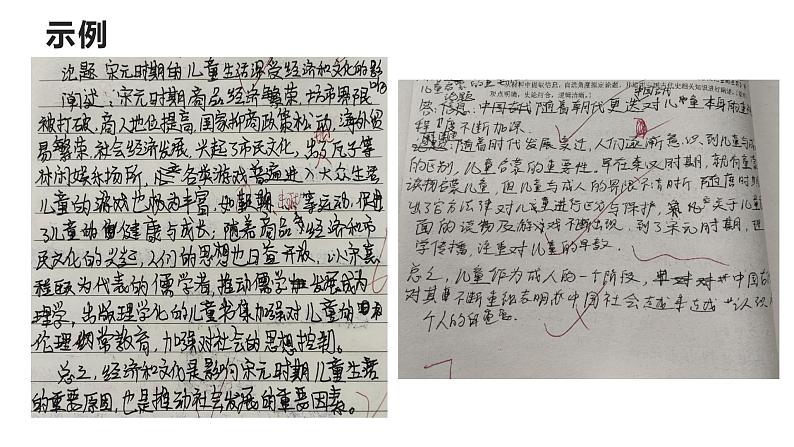 示例
论题：宋元时期的儿童生活深受经济和文化的影响
阐述：宋元时期商品经济繁荣，坊市界限
被打破，商人地位提高，国家抑商政策松动，海外贸
易繁荣，社会经济发展，兴起了市民文化，出现瓦子等
休闲娱乐场所，各类游戏普遍进入大众生活
儿童的游戏也极为丰富，如 等运动，促进
了儿童的健康与成长；随着商品经济和市
民文化的兴起，人们的思想也日益开放，以宋嘉
程颐为代表的儒学者，推动儒学发展成为
理学，出版理学化的儿童书集加强对儿童的
伦理纲常教育，加强对社会的思想控制。
总之，经济和文化是影响宋元时期儿童生活
的重要原因，也是推动社会发展的重要因素。
材料中提取信息，自选角度拟定论题，
观点明确，史论结合，逻辑清晰。
中国古代随着朝代更迭对儿童本身的重视
程度不断加深。
随着时代发展变迁，人们逐渐意识到儿童与成人
的区别，儿童启蒙的重要性。早在秦汉时期，就有
读物启蒙儿童，但儿童与成人的界限不清晰，
出了官方法律对儿童进行区分与保护，关于儿童
面的读物及游戏不断出现，到了宋元时期，理
学传播，注重对儿童的早教。
总之，儿童作为成人的一个阶段，中国古
对其不断重视表明中国社会越来越认识
个人的重要。